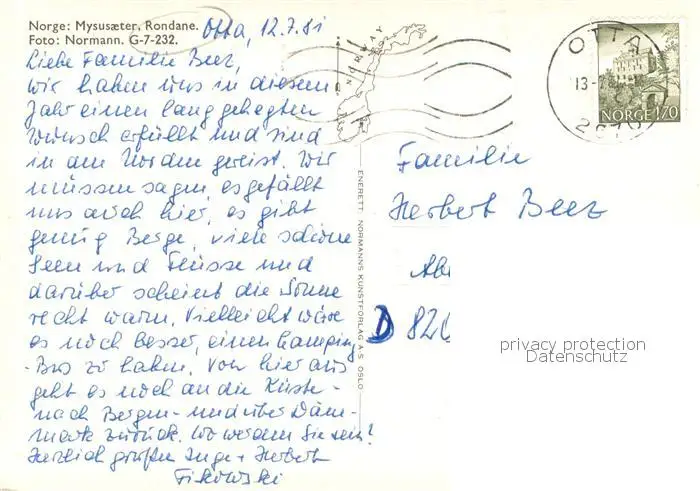 Norge: Mysusæter, Rondane.
Foto: Normann. G-7-232.
Otta, 12.7.81
Liebe Familie Beez,
wir haben uns in diesem
Jahr einen lang gehegten
Wunsch erfüllt und sind
in den Norden gereist. Wir
müssen sagen, es gefällt
uns auch hier, es gibt
genug Berge, viele schöne
Seen und Flüsse und
darüber scheint die Sonne
recht warm. Vielleicht wäre
es noch besser, einen Camping
-Bus zu haben. Von hier aus
geht es noch an die Küste -
nach Bergen - und über Däne-
mark zurück. Wo werden Sie sein?
Herzlich grüßen Inge + Herbert
Fikowski
NORWAY
ENERETT: NORMANNS KUNSTFORLAG A/S, OSLO
OTTA
13-7
2670
NORGE 170
Familie
Herbert Beez
D 820
privacy protection
Datenschutz